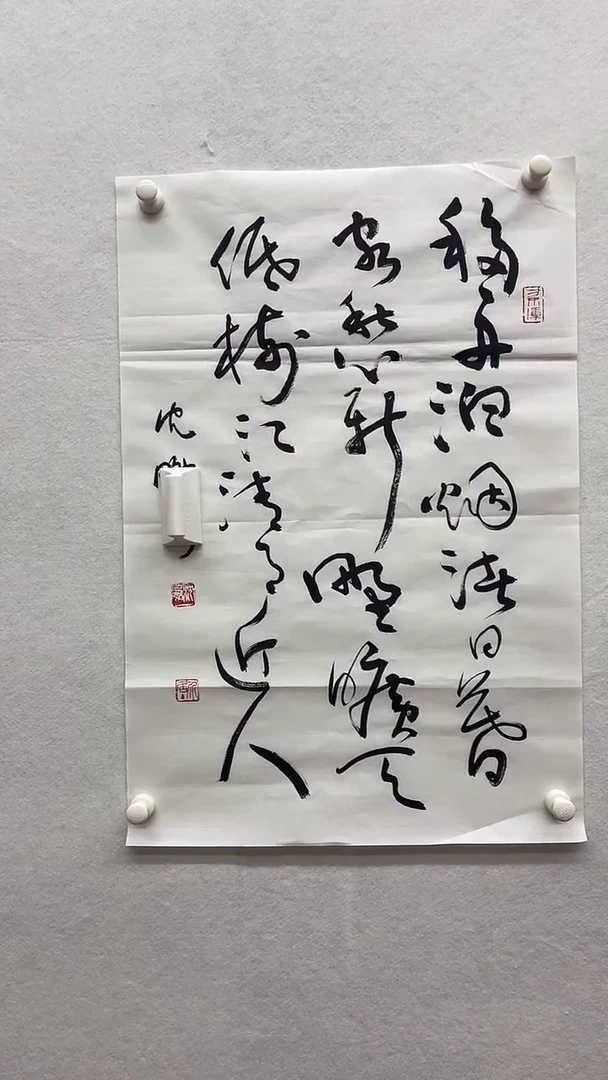 移舟泊烟渚日暮
客愁新野曠天
低樹江清月近人
沈